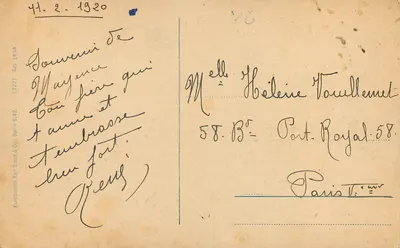 11.2.1920
Souvenir de
Mayence
Ton frère qui
t'aime et
t'embrasse
bien fort.
René
Melle Hélène Vouillemet
58. Bd Port-Royal-58.
Paris V.ème